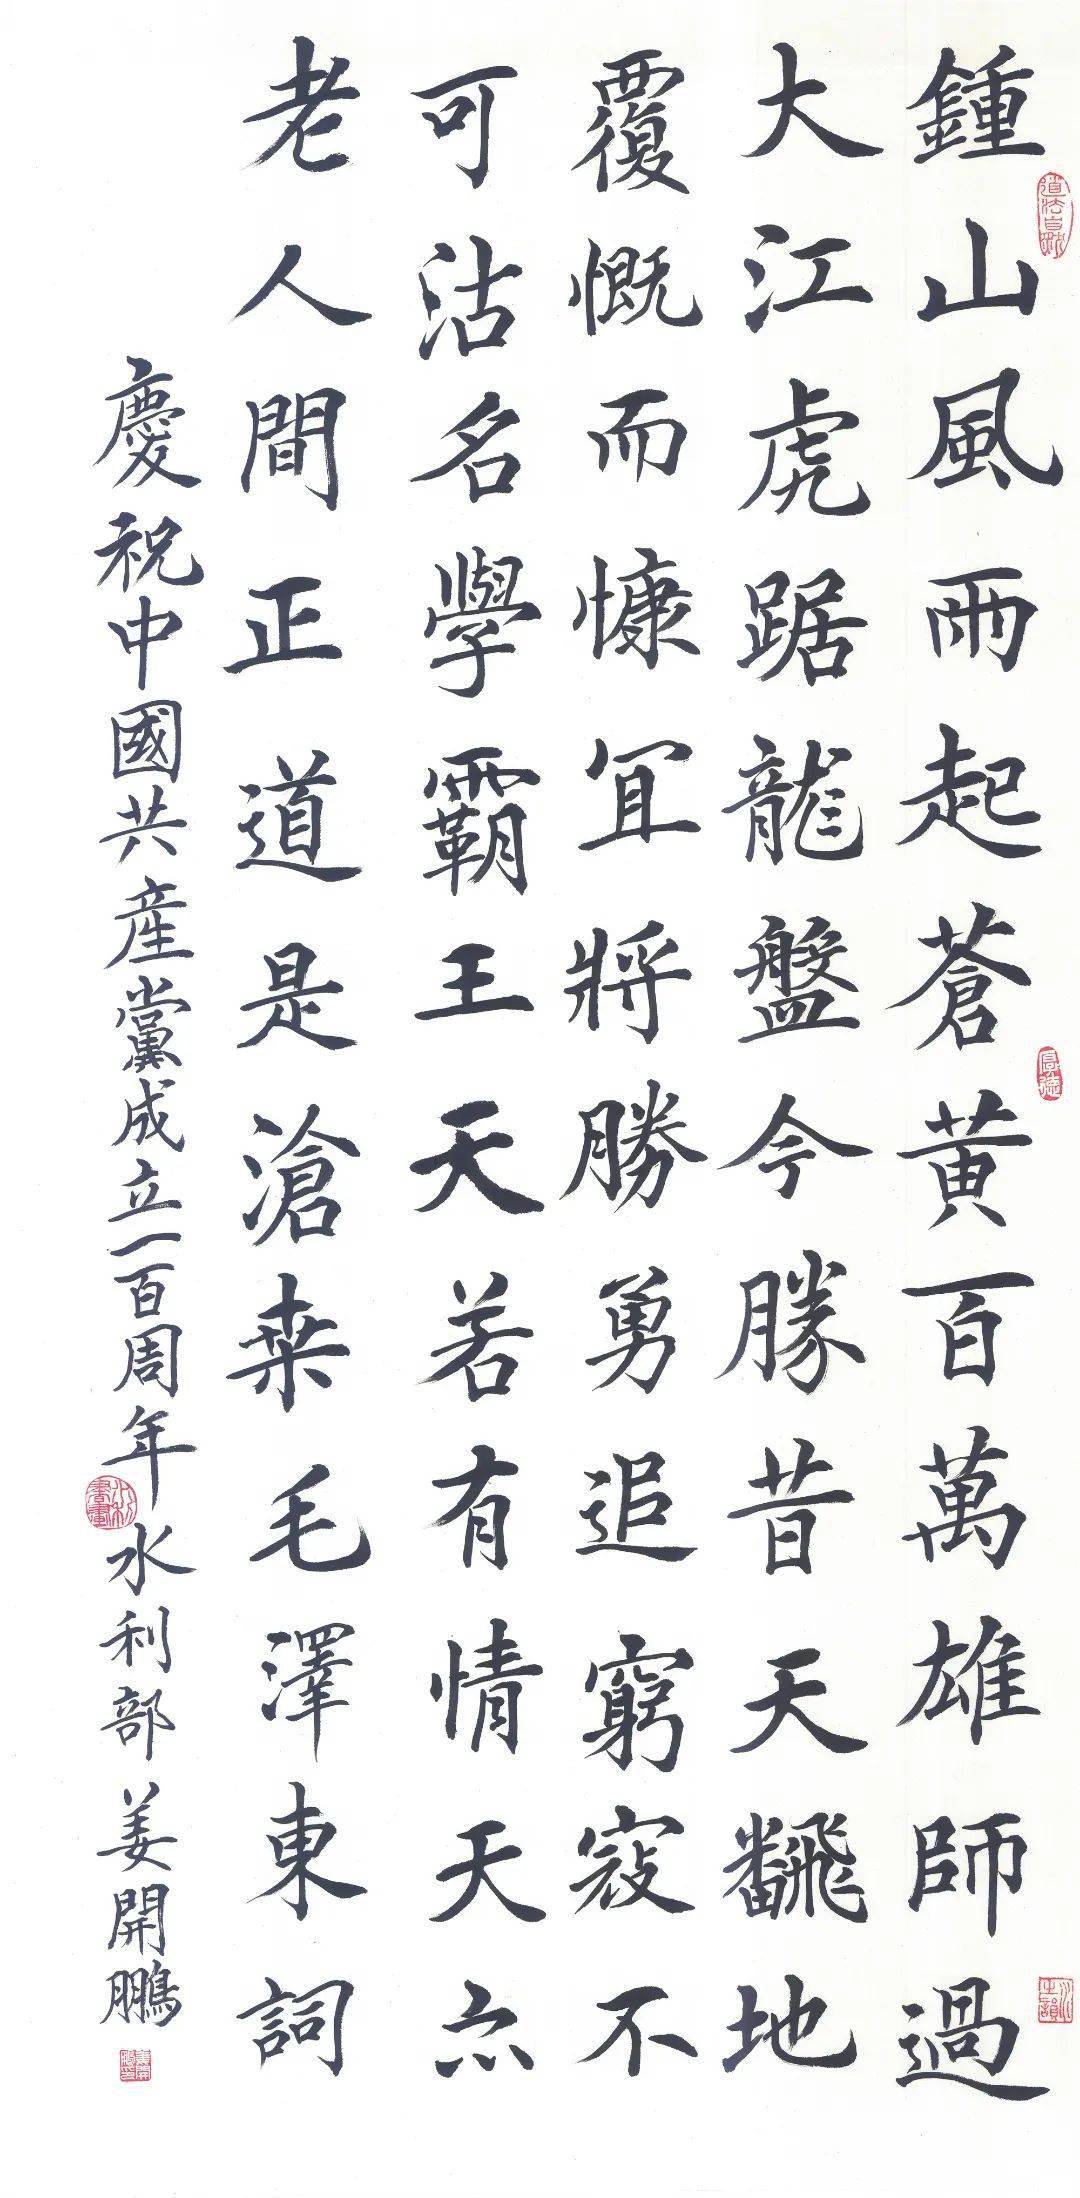 鍾山風雨起蒼黃百萬雄師過
大江虎踞龍盤今勝昔天飜地
覆慨而慷冝將勝勇追窮寇不
可沽名學霸王天若有情天亦
老人間正道是滄桒毛澤東詞
慶祝中國共產黨成立一百周年 水利部 姜開鵬
道法自然
厚德